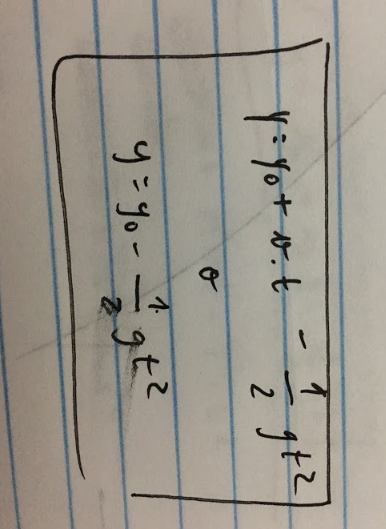 y = y₀ + v.t - 1/2 gt²
o
y = y₀ - 1/2 gt²